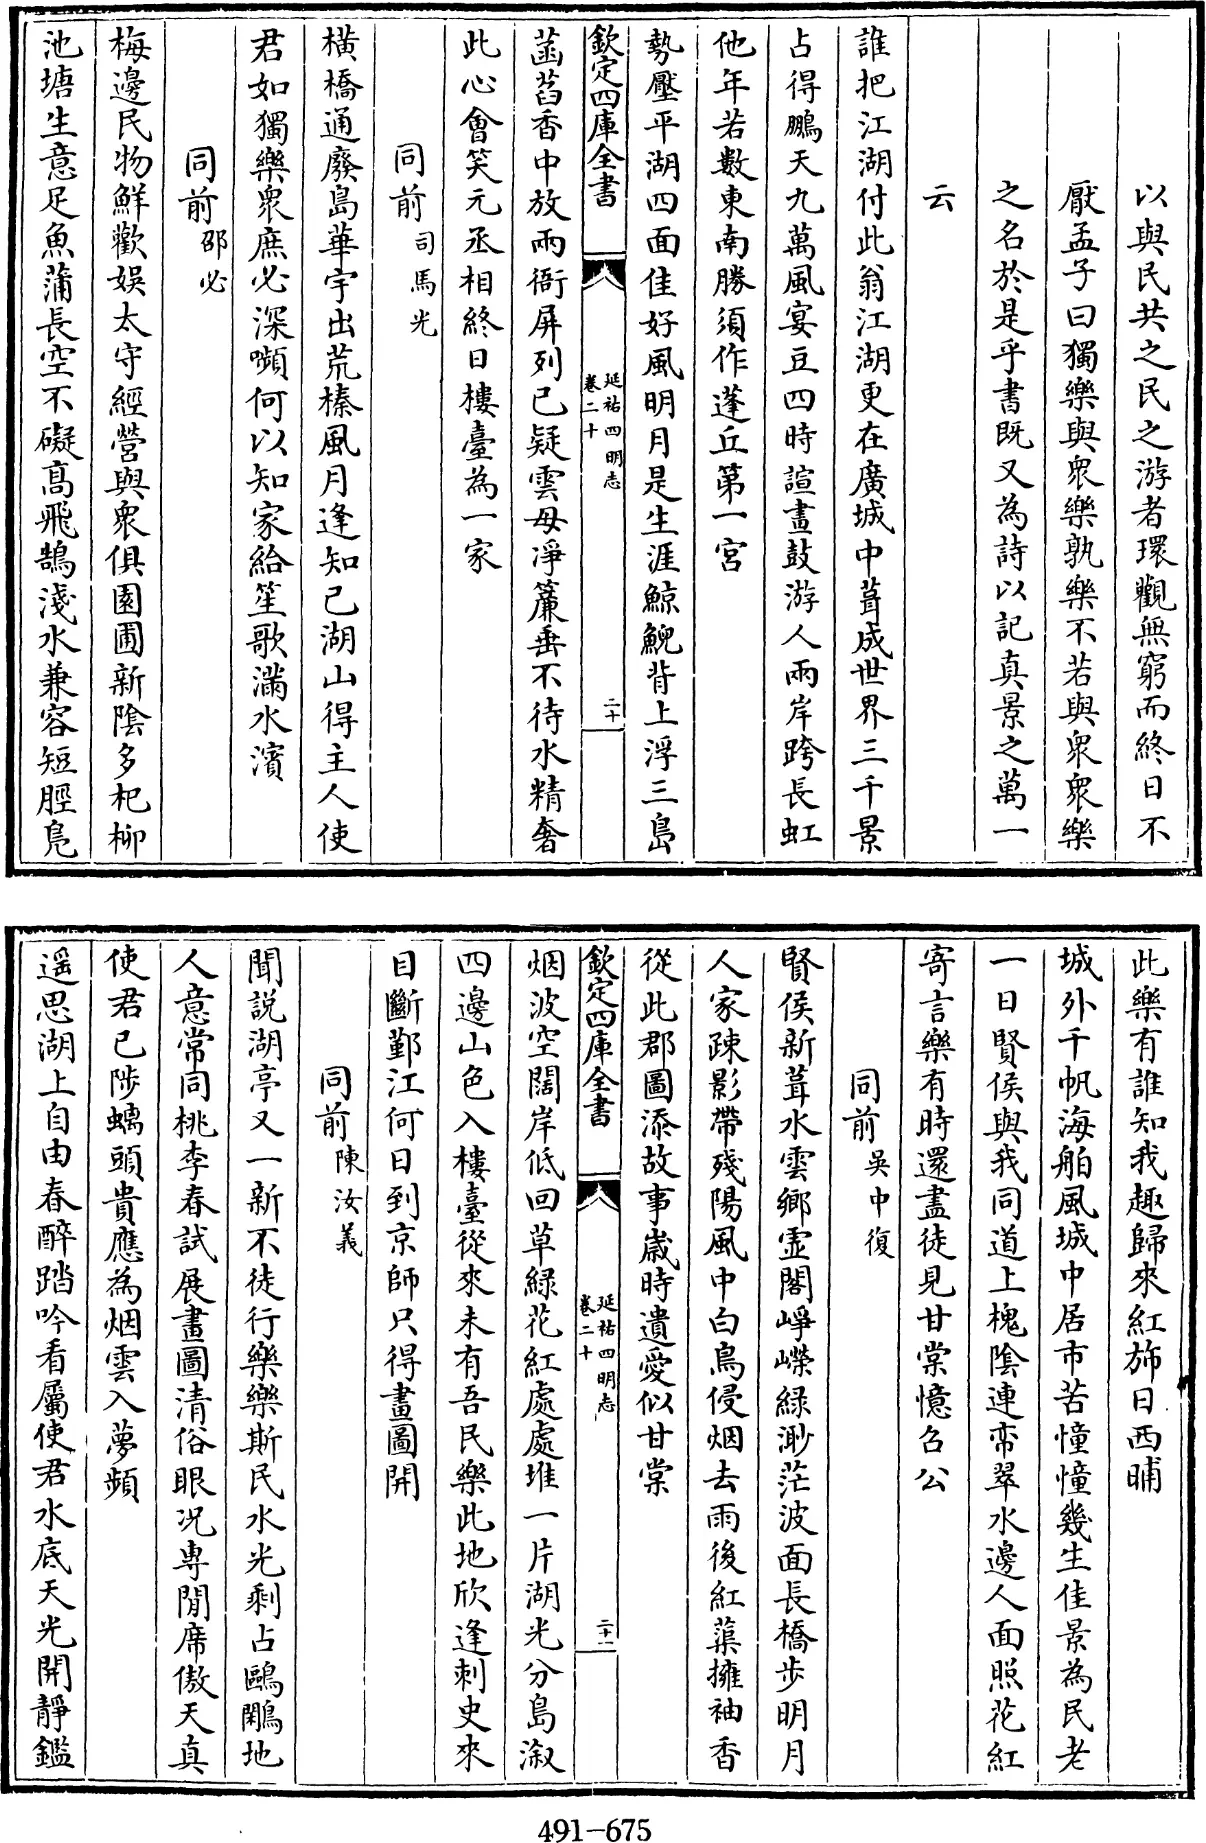 以與民共之民之游者環觀無窮而終日不
厭孟子曰獨樂與衆樂孰樂不若與衆衆樂
之名於是乎書既又為詩以記真景之萬一
云
誰把江湖付此翁江湖更在廣城中葺成世界三千景
占得鵬天九萬風宴豆四時諠畫鼓游人兩岸跨長虹
他年若數東南勝須作蓬丘第一宮
勢壓平湖四面佳好風明月是生涯鯨鯢背上浮三島
欽定四庫全書
延祐四明志
卷二十
二十
菡萏香中放兩衙屏列已疑雲母淨簾垂不待水精奢
此心會笑元丞相終日樓臺為一家
同前司馬光
橫橋通廢島華宇出荒榛風月逢知己湖山得主人使
君如獨樂衆庶必深嚬何以知家給笙歌滿水濱
同前邵必
梅邊民物鮮歡娛太守經營與衆俱園圃新陰多杞柳
池塘生意足魚蒲長空不礙高飛鵠淺水兼容短脛鳧
此樂有誰知我趣歸來紅斾日西晡
城外千帆海舶風城中居市苦憧憧幾生佳景為民老
一日賢侯與我同道上槐陰連帟翠水邊人面照花紅
寄言樂有時還盡徒見甘棠憶召公
同前吳中復
賢侯新葺水雲鄉虛閣崢嶸綠渺茫波面長橋步明月
人家疎影帶殘陽風中白鳥侵烟去雨後紅蕖擁袖香
從此郡圖添故事歲時遺愛似甘棠
欽定四庫全書
延祐四明志
卷二十
二十一
烟波空闊岸低回草綠花紅處處堆一片湖光分島溆
四邊山色入樓臺從來未有吾民樂此地欣逢刺史來
目斷鄞江何日到京師只得畫圖開
同前陳汝羲
聞說湖亭又一新不徒行樂樂斯民水光剩占鷗鷴地
人意常同桃李春試展畫圖清俗眼况專閒席傲天真
使君已陟螭頭貴應為烟雲入夢頻
遥思湖上自由春醉踏吟看屬使君水底天光開靜鑑
491-675